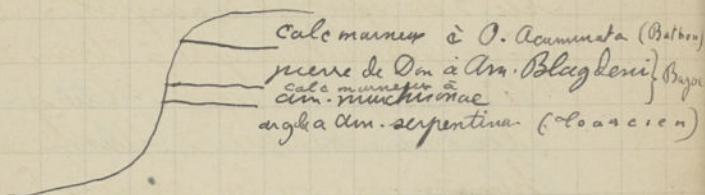 calc marneux à O. Acuminata (Bathon)
pierre de Dom à Am. Blagdeni } Bajoc
calc marneux à
am. murchisonae
argile à am. serpentina (Toarcien)